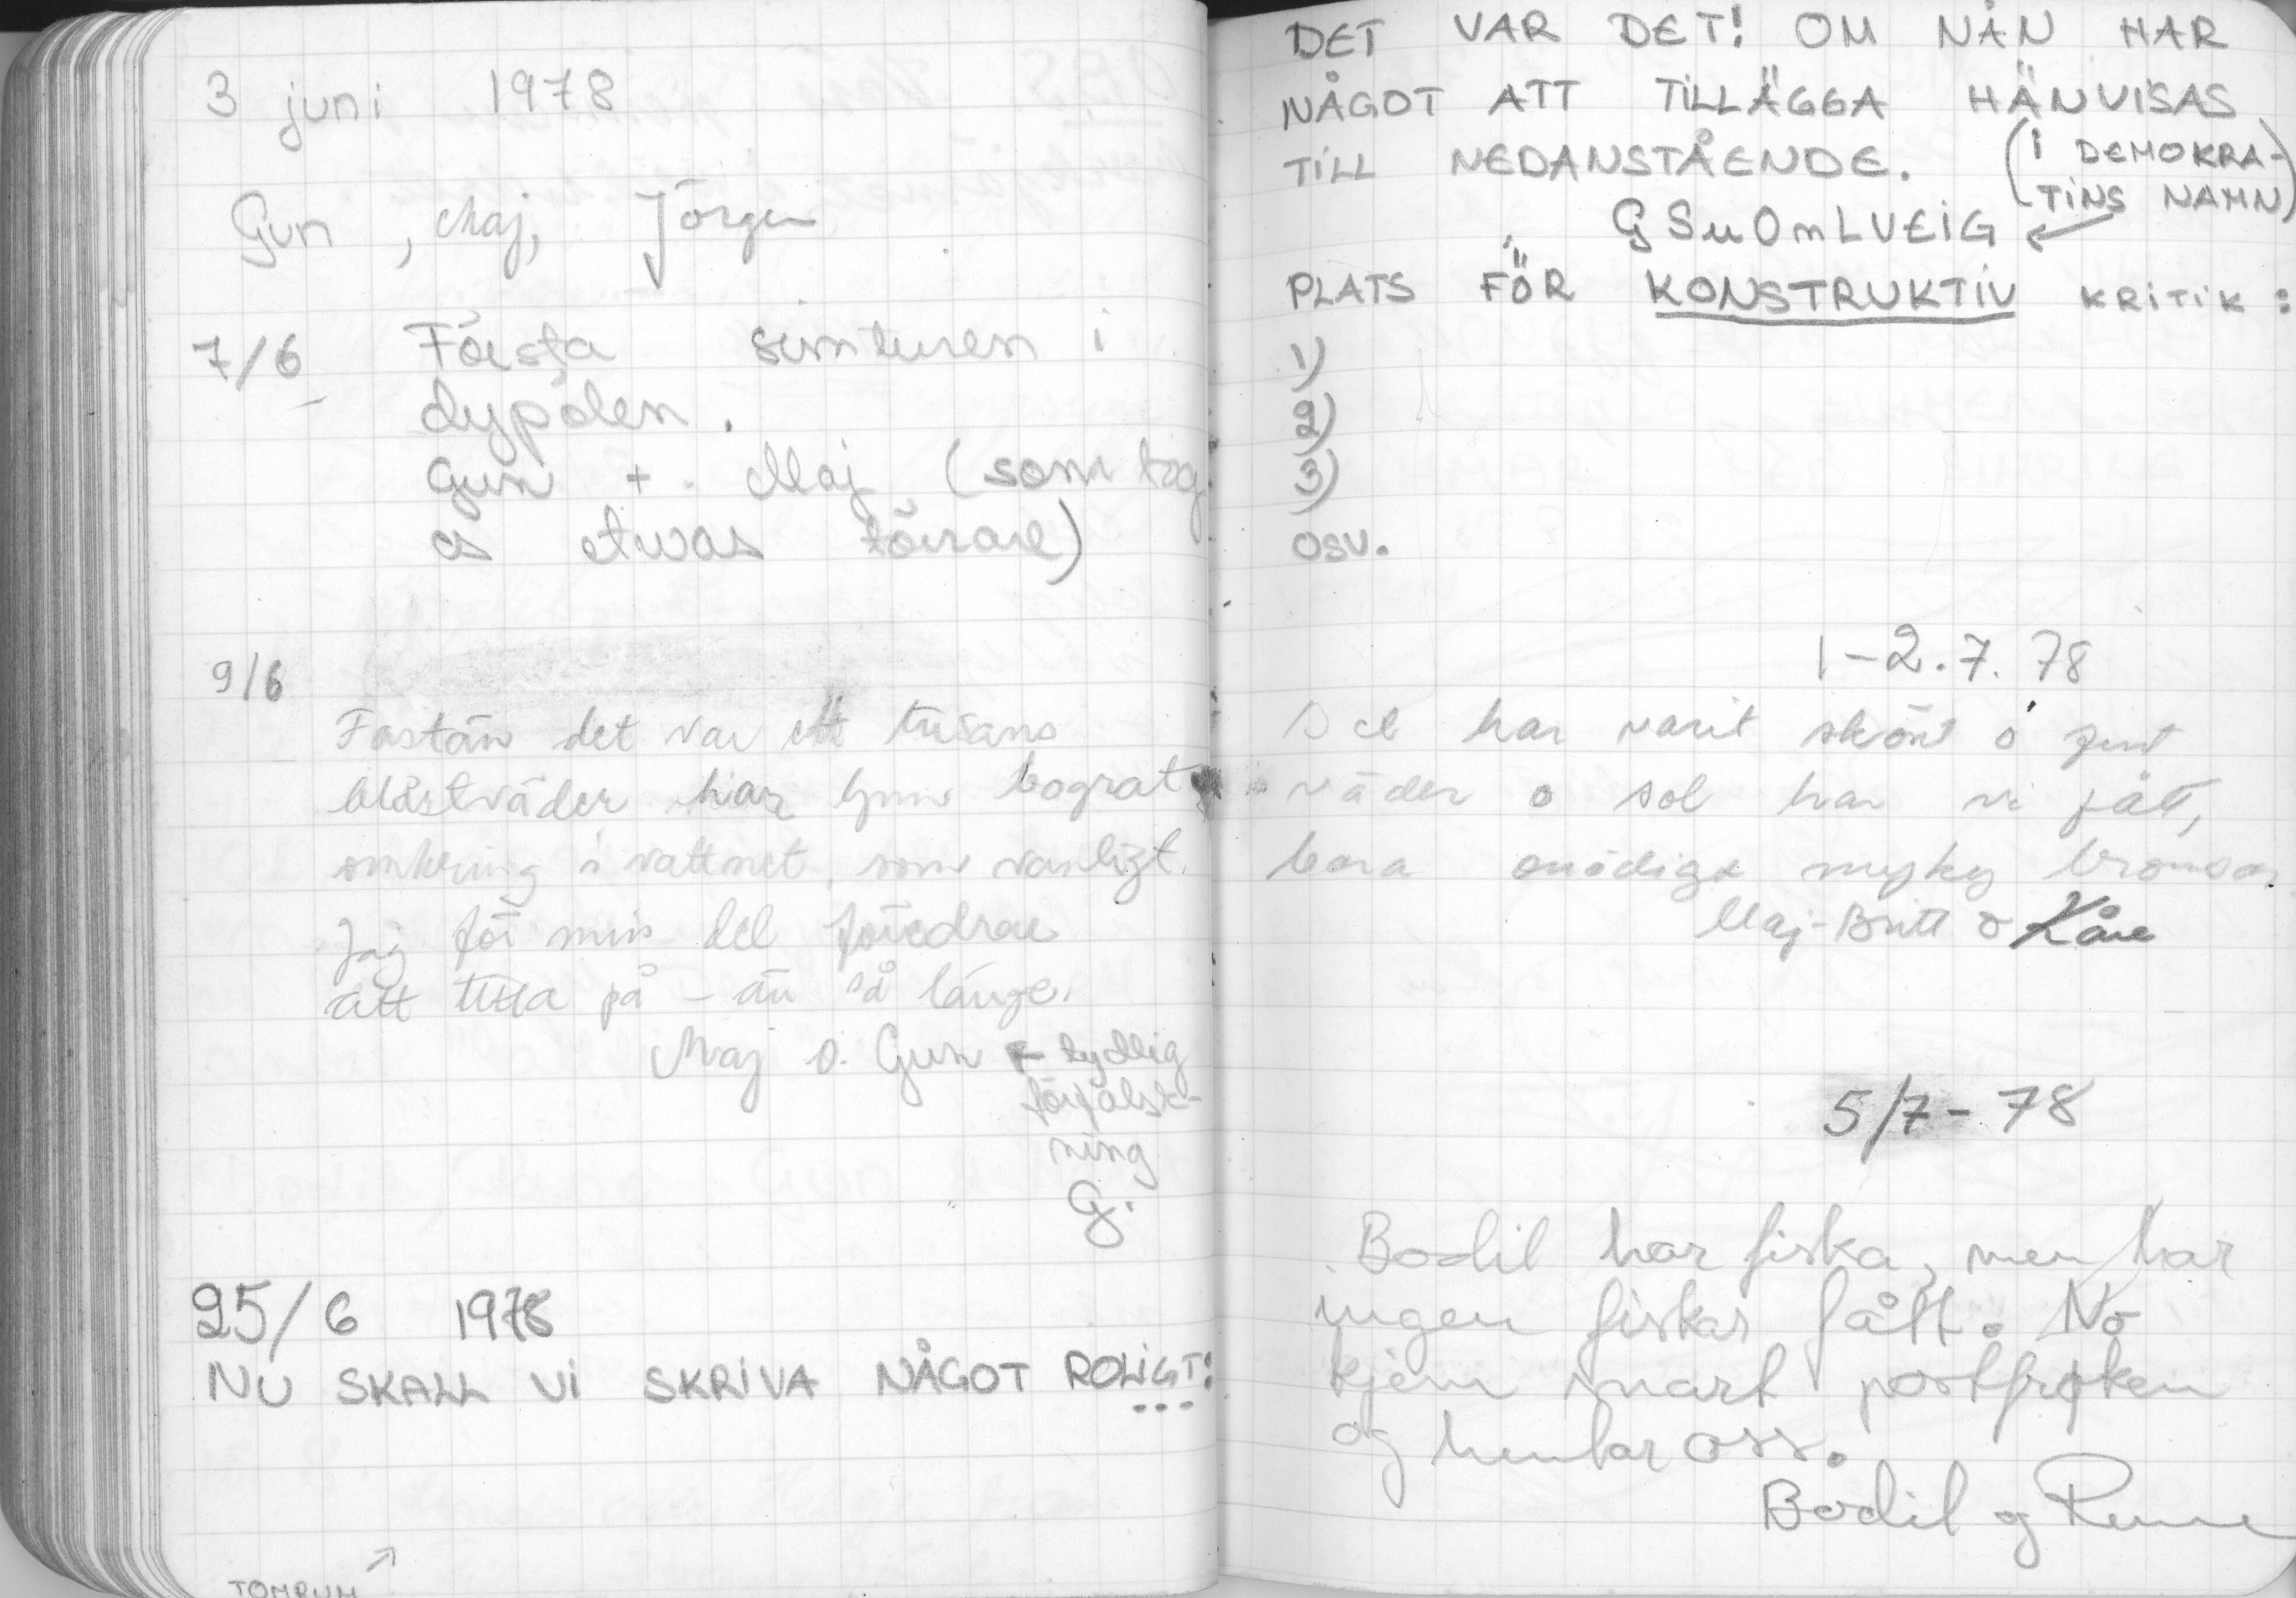 3 juni 1978
Gun, Maj, Jörgen
7/6 Första simturen i
dypölen.
Gun + Maj (som tog
es etwas törrare)
9/6
Fastän det var ett tusans
blåstväder har Gun bograt
omkring i vattnet, som vanligt.
Jag för min del föredrar
att titta på - än så länge.
Maj o. Gun ← tydlig
förfalsk-
ning
G.
25/6 1978
NU SKALL VI SKRIVA NÅGOT ROLIGT!
...
TOMRUM ↗
DET VAR DET! OM NÅN HAR
NÅGOT ATT TILLÄGGA HÄNVISAS
TILL NEDANSTÅENDE. (I DEMOKRA-
TINS NAMN)
GSuOnLVEIG ←
PLATS FÖR KONSTRUKTIV KRITIK:
1)
2)
3)
OSV.
1-2.7.78
Det har varit skönt o fint
väder o sol har vi fått,
bara onödiga myky bromsar
Maj-Britt o Kåre
5/7-78
Bodil har fiska, men har
ingen fiskar fått. No
kjem snart postfrøken
og hentar oss.
Bodil og Rune